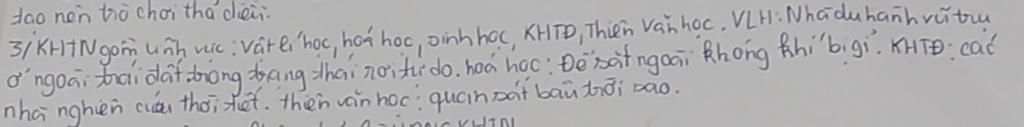 tạo nên trò chơi thả diều.
3/KHTN gồm lĩnh vực: vật lí học, hoá học, sinh học, KHTĐ, Thiên văn học. VLH: Nhà du hành vũ trụ
ở ngoài trái đất trong trạng thái rơi tự do. hoá học: Để sắt ngoài không khí "bị gỉ". KHTĐ: các
nhà nghiên cứu thời tiết. thiên văn học: quan sát bầu trời sao.
KHTN